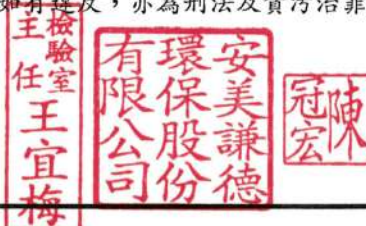 如有違反，亦為刑法及貪污治罪
檢驗室
主任 王宜梅
安美謙德
環保股份
有限公司
陳
冠宏